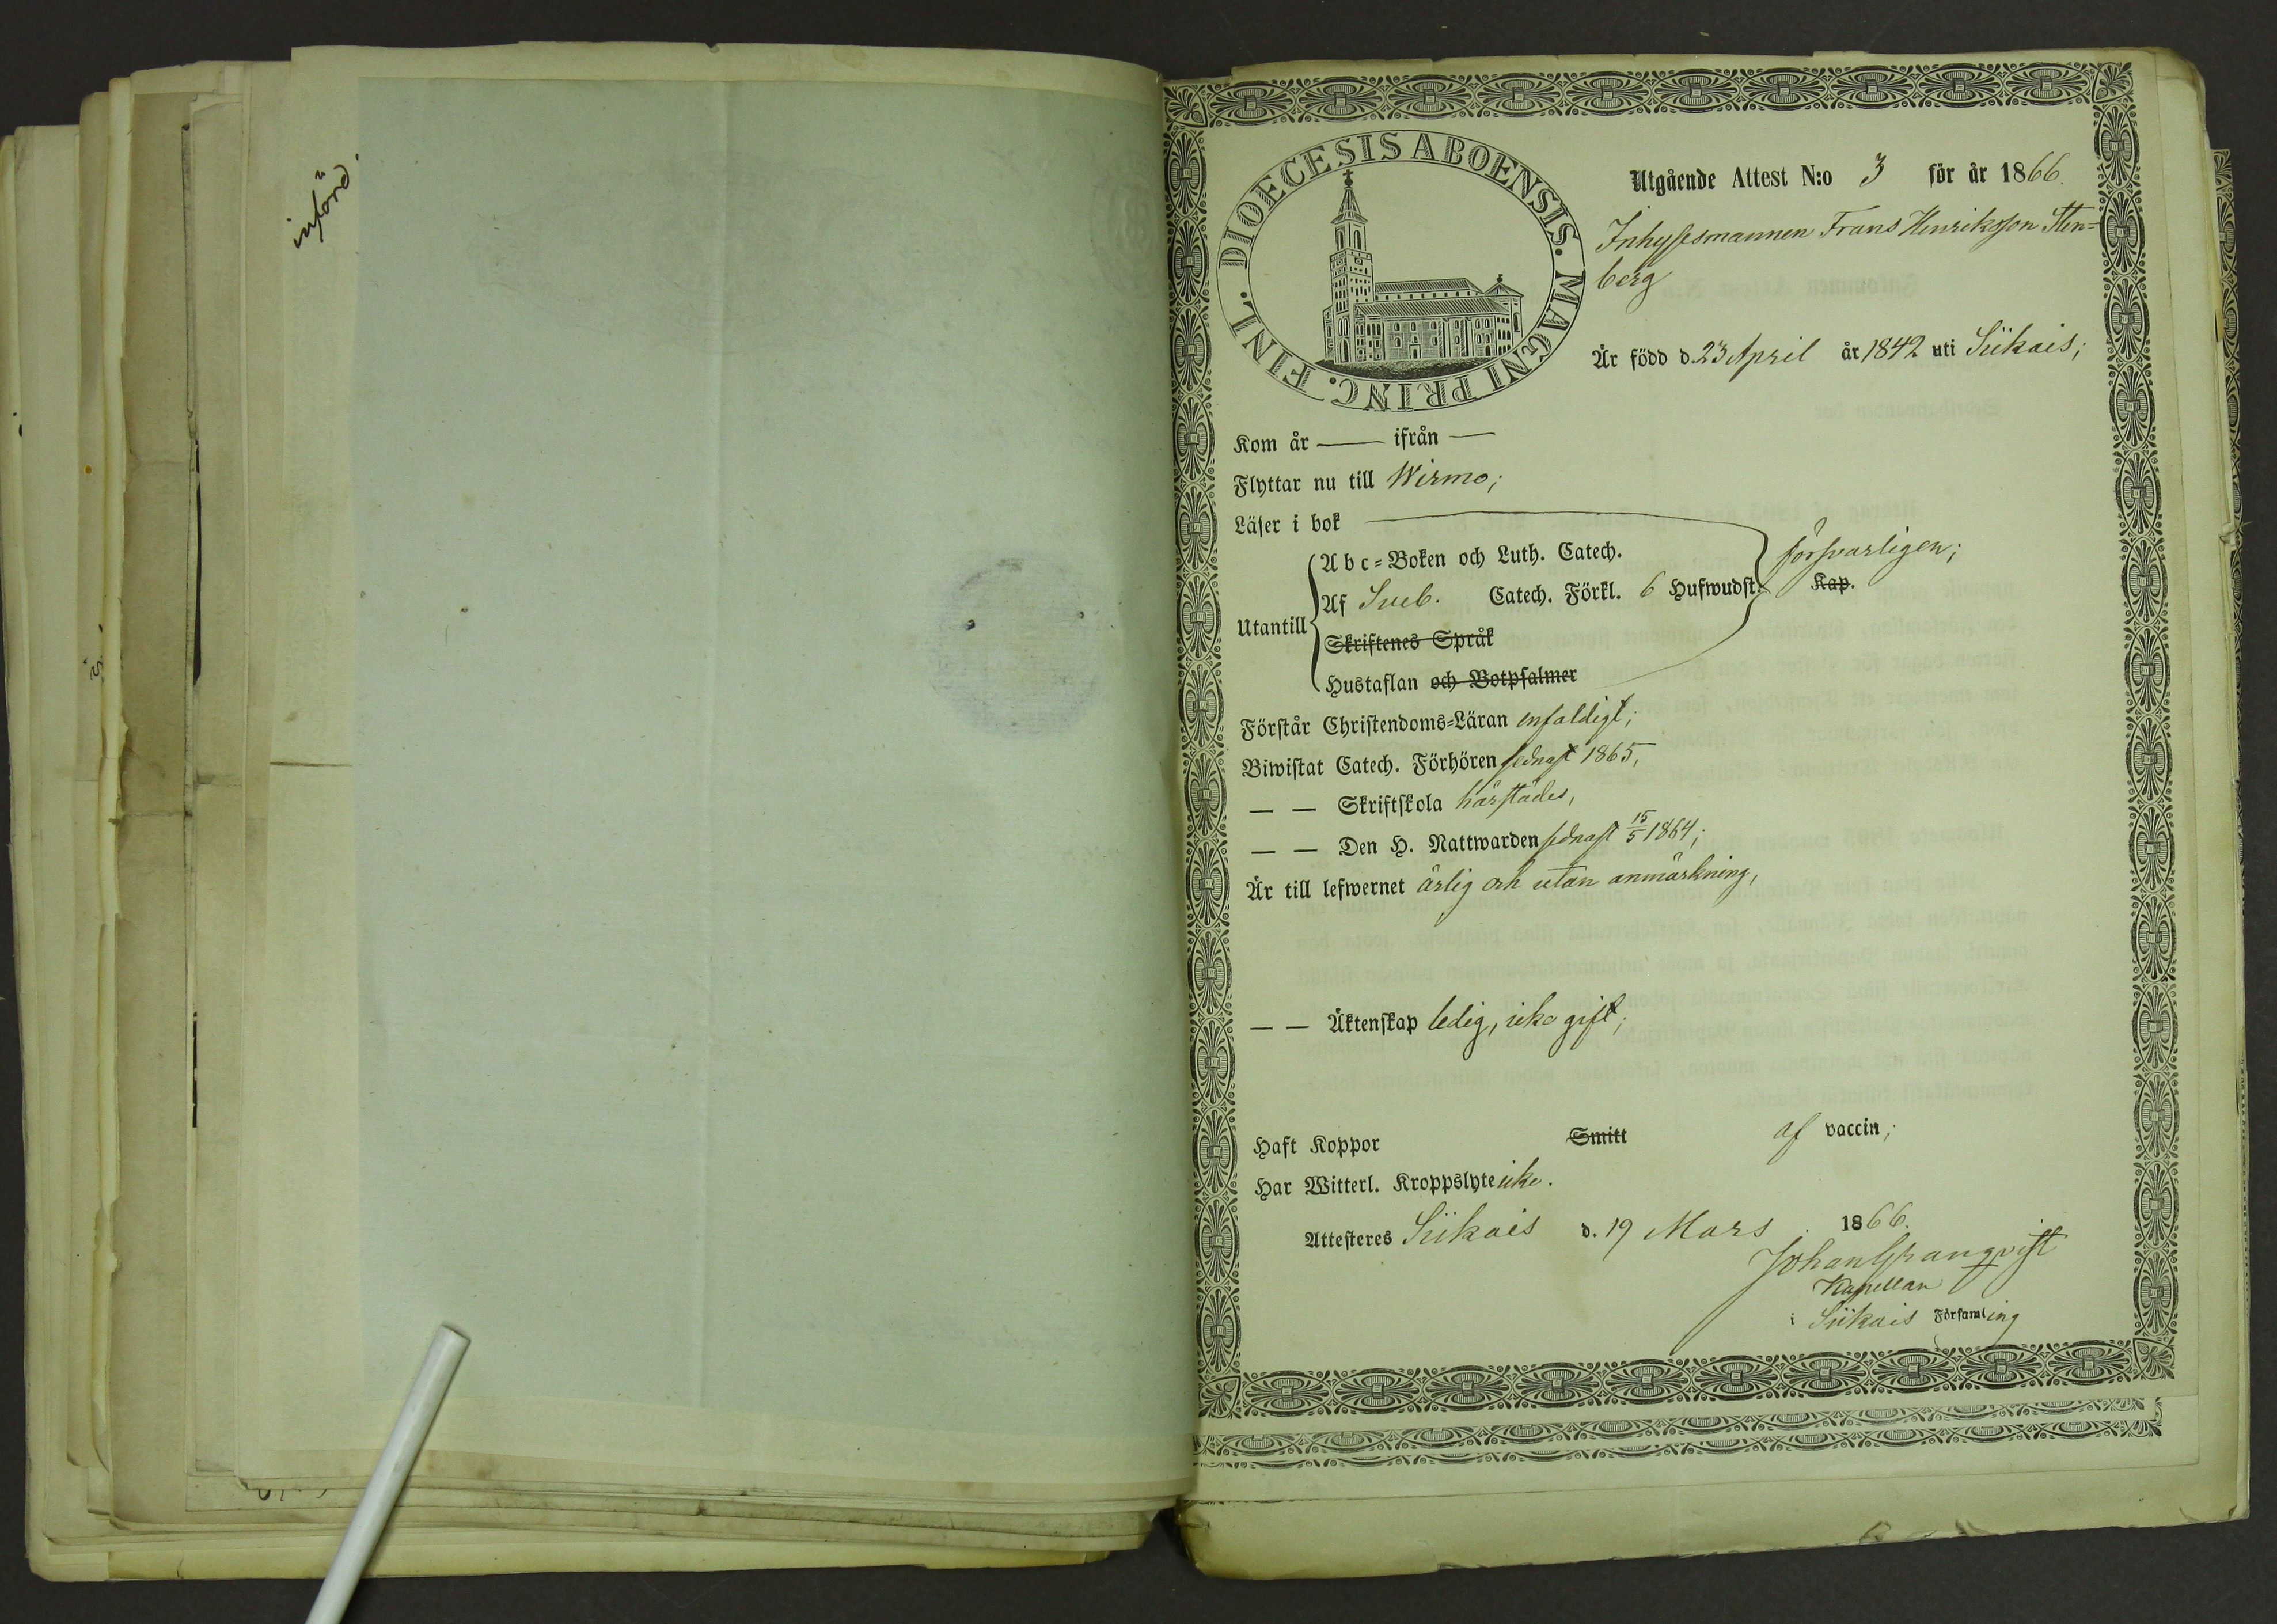 införd.
DIOECESIS ABOENSIS. MAGNI PRINC. FINL.
Utgående Attest N:o 3 för år 1866.
Inhysesmannen Frans Henriksson Sten-
berg
Är född d. 23 April år 1842 uti Siikais;
Kom år — ifrån —
Flyttar nu till Wirmo;
Läser i bok
Utantill
Abc-Boken och Luth. Catech.
försvarligen;
Af Sveb. Catech. Förkl. 6 Hufwudst. Kap.
Skriftenes Språk
Hustaflan och Botpsalmer
Förstår Christendoms-Läran enfaldigt;
Biwistat Catech. Förhören sednast 1865,
— — Skriftskola härstädes,
— — Den H. Nattwarden sednast 15/5 1864;
Är till lefwernet ärlig och utan anmärkning,
— — Äktenskap ledig, icke gift;
Haft Koppor Smitt af vaccin;
Har Witterl. Kroppslyte icke.
Attesteres Siikais d. 19 Mars 1866.
Johan Granqvist
Kapellan
i Siikais Församling